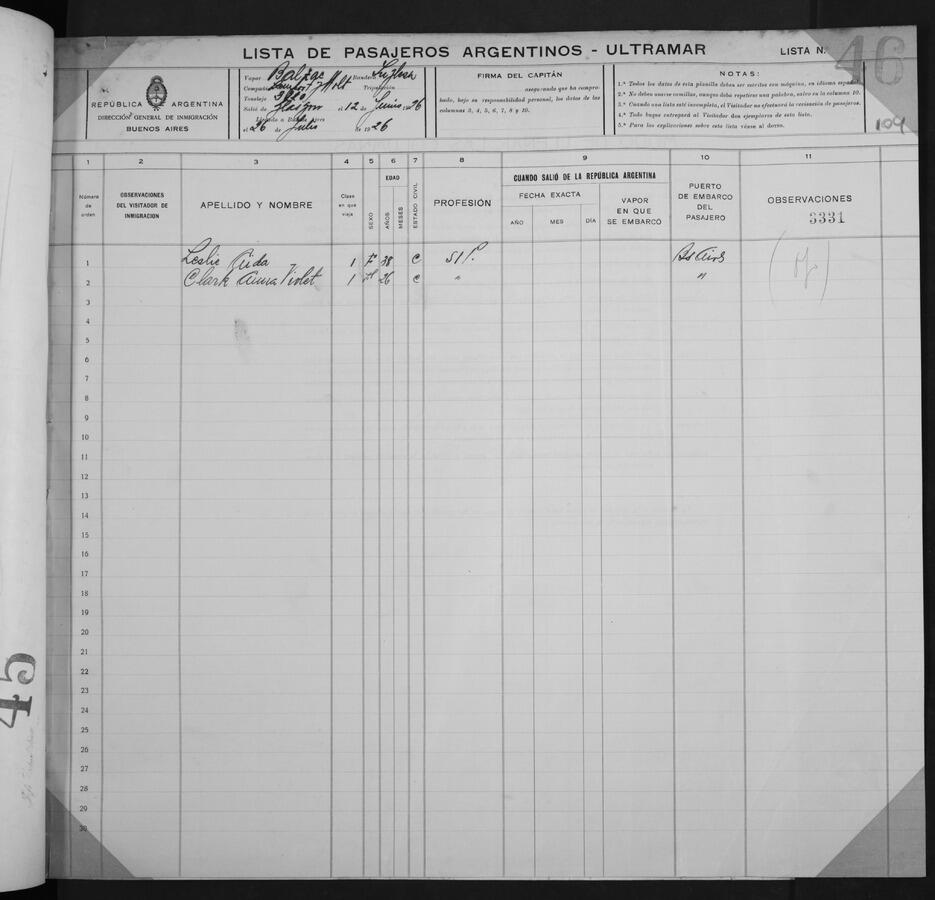 LISTA DE PASAJEROS ARGENTINOS - ULTRAMAR
LISTA N.
46
REPÚBLICA ARGENTINA
DIRECCIÓN GENERAL DE INMIGRACIÓN
BUENOS AIRES
Vapor Balzac Bandera Inglesa
Compañía Lamport y Holt Tripulación
Tonelaje
Salió de Glasgow el 12 de Junio 1926
Llegado a Buenos Aires
el 26 de Julio de 1926
FIRMA DEL CAPITÁN
asegurando que ha compro-
bado, bajo su responsabilidad personal, los datos de las
columnas 3, 4, 5, 6, 7, 8 y 10.
NOTAS:
1.ª Todos los datos de esta planilla deben ser escritos con máquina, en idioma español.
2.ª No deben usarse comillas, aunque deba repetirse una palabra, salvo en la columna 10.
3.ª Cuando una lista esté incompleta, el Visitador no efectuará la revisación de pasajeros.
4.ª Todo buque entregará al Visitador dos ejemplares de esta lista.
5.ª Para las explicaciones sobre esta lista véase al dorso.
104
1 2 3 4 5 6 7 8 9 10 11
Número de orden
OBSERVACIONES DEL VISITADOR DE INMIGRACIÓN
APELLIDO Y NOMBRE
Clase en que viaja
SEXO
EDAD
AÑOS
MESES
ESTADO CIVIL
PROFESIÓN
CUANDO SALIÓ DE LA REPÚBLICA ARGENTINA
FECHA EXACTA
AÑO MES DÍA
VAPOR EN QUE SE EMBARCÓ
PUERTO DE EMBARCO DEL PASAJERO
OBSERVACIONES
3331
1 Leslie Aida 1 F 38 C S/P. Bs Aires
2 Clark Anna Violet 1 26 C " "
3
4
5
6
7
8
9
10
11
12
13
14
15
16
17
18
19
20
21
22
23
24
25
26
27
28
29
30
45